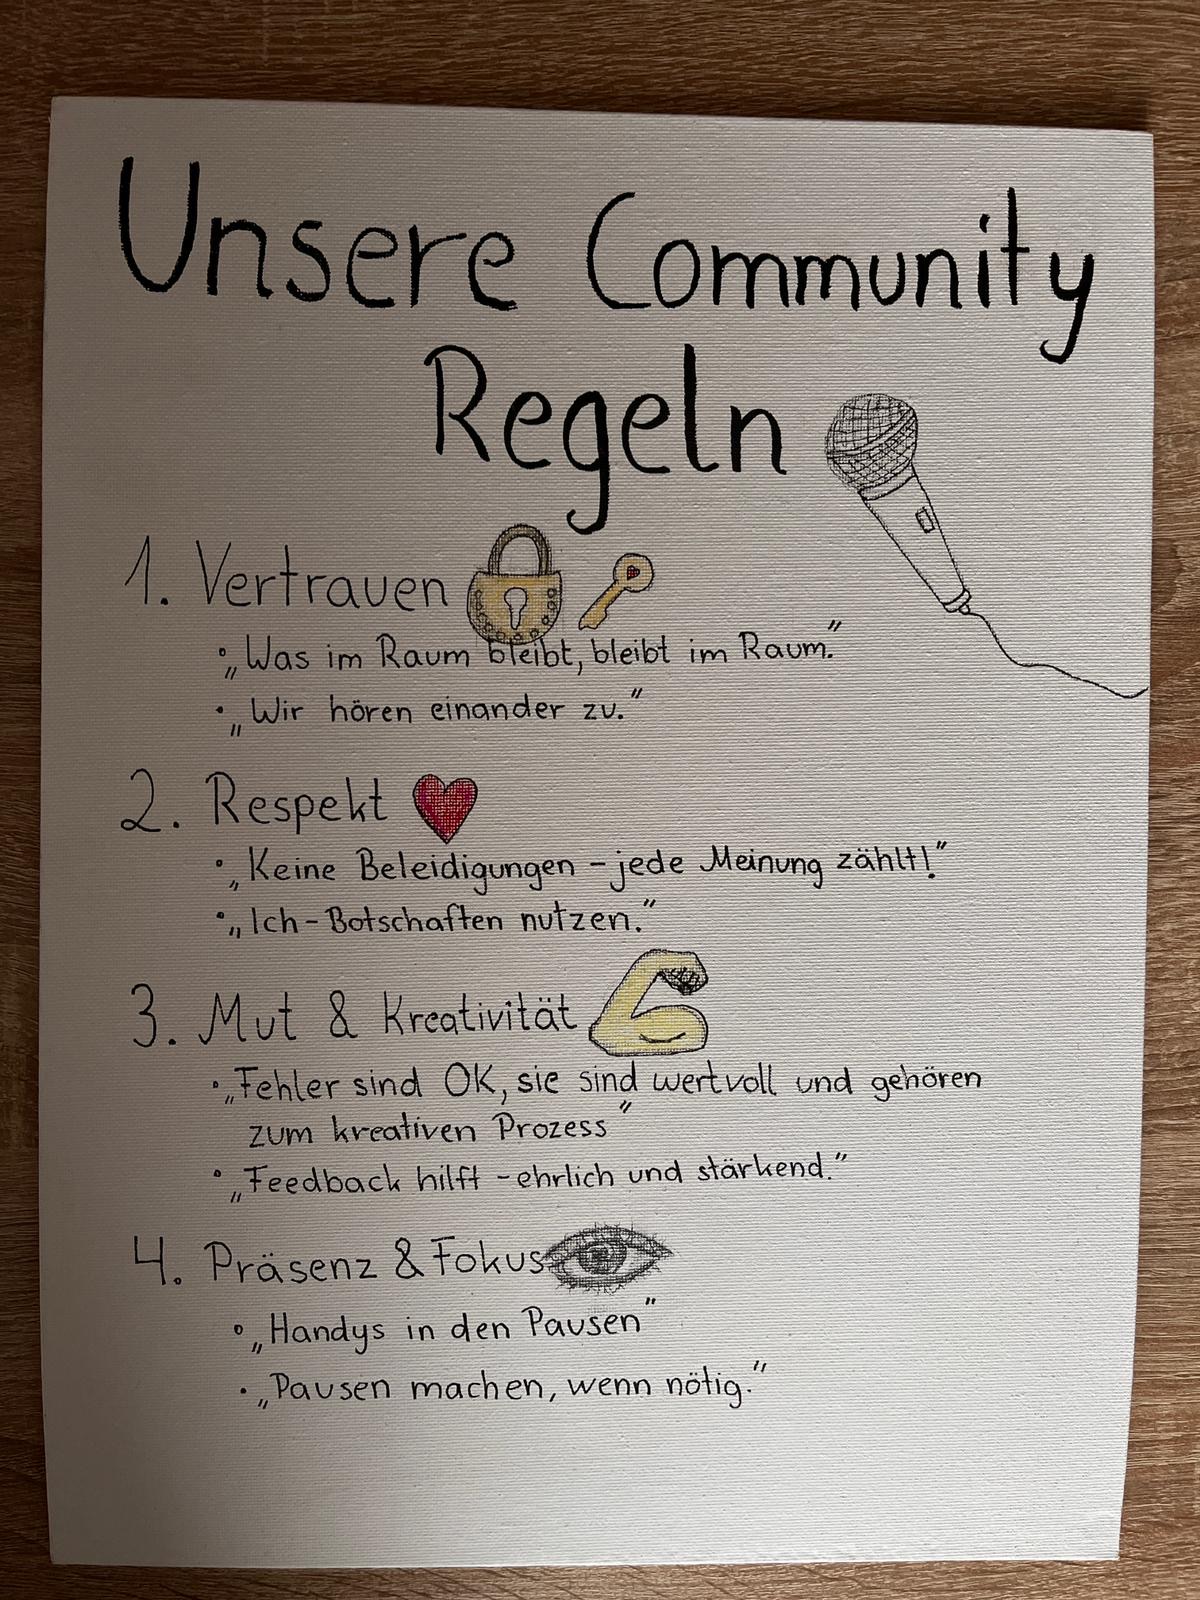 Unsere Community
Regeln
1. Vertrauen
• „Was im Raum bleibt, bleibt im Raum."
• „Wir hören einander zu."
2. Respekt
• „Keine Beleidigungen – jede Meinung zählt!"
• „Ich-Botschaften nutzen."
3. Mut & Kreativität
• „Fehler sind OK, sie sind wertvoll und gehören
zum kreativen Prozess"
• „Feedback hilft – ehrlich und stärkend."
4. Präsenz & Fokus
• „Handys in den Pausen"
• „Pausen machen, wenn nötig."